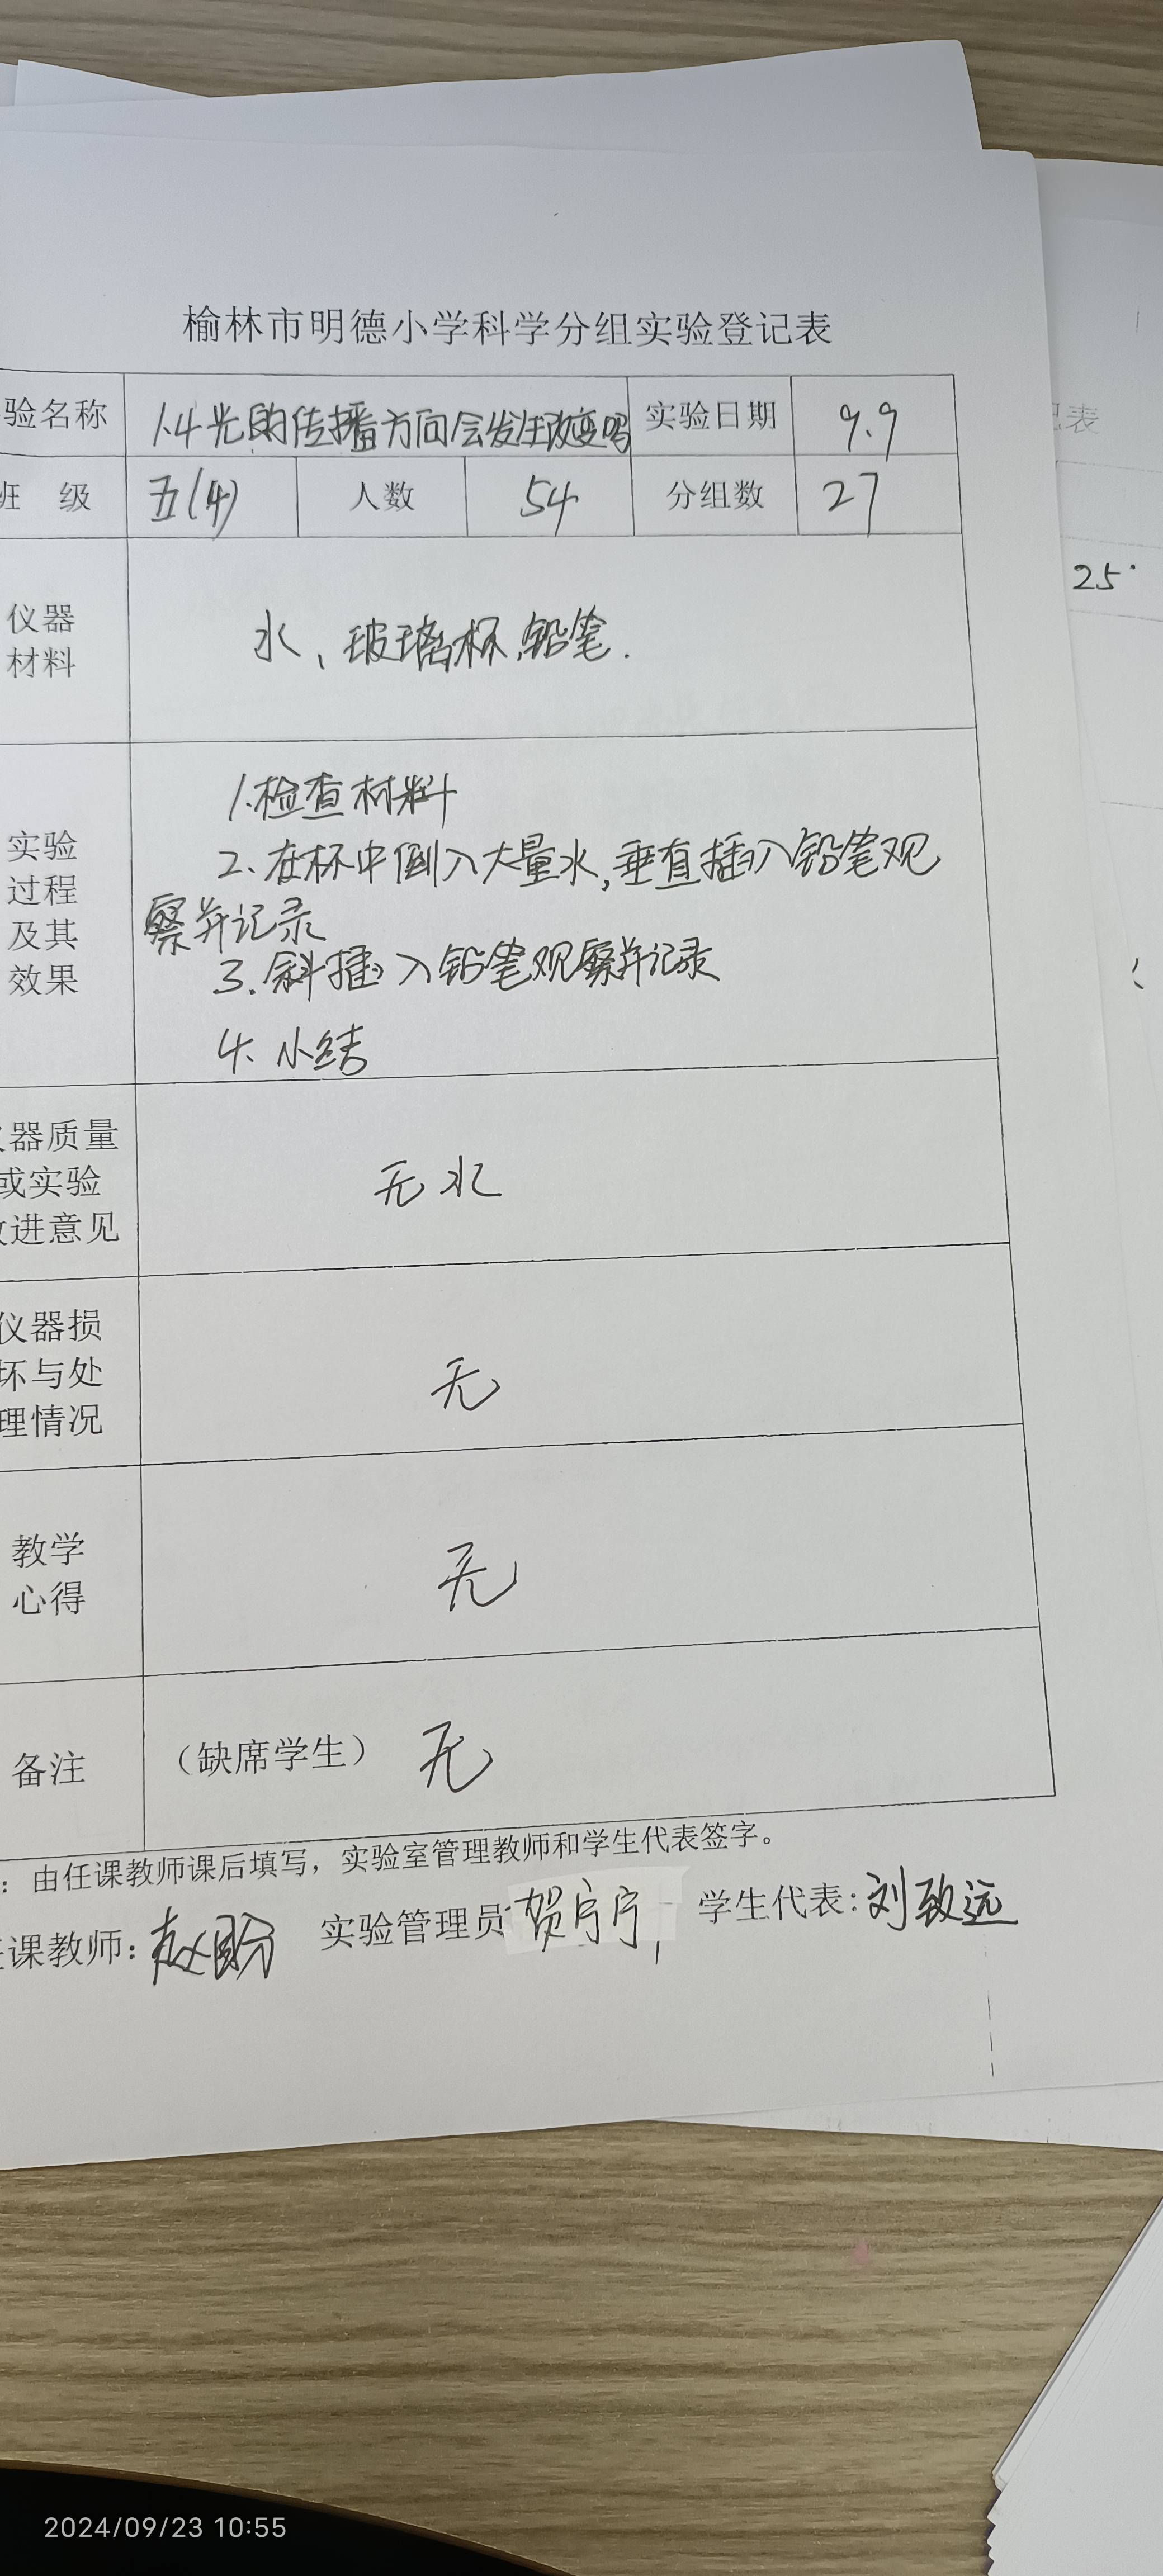 榆林市明德小学科学分组实验登记表
验名称 1.4光的传播方向会发生改变吗 实验日期 9.9
班 级 五(4) 人数 54 分组数 27
仪器
材料
水、玻璃杯、铅笔.
实验
过程
及其
效果
1.检查材料
2.在杯中倒入大量水,垂直插入铅笔观
察并记录
3.斜插入铅笔观察并记录
4.小结
器质量
或实验
进意见
无水
仪器损
坏与处
理情况
无
教学
心得
无
备注 （缺席学生） 无
：由任课教师课后填写，实验室管理教师和学生代表签字。
课教师：赵盼 实验管理员 贺宁宁 学生代表：刘致远
表
25
2024/09/23 10:55